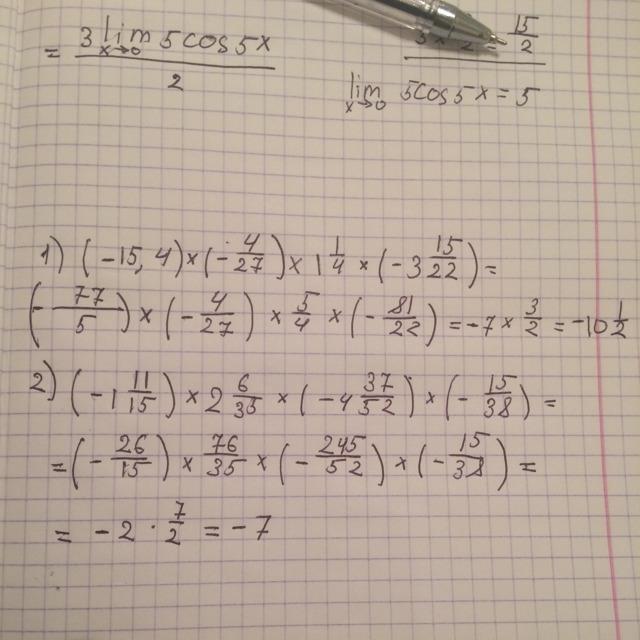 = (3 lim x→0 5cos5x)/2
15/2
lim x→0 5cos5x = 5
1) (-15,4)×(-4/27)×1 1/4×(-3 15/22)=
(-77/5)×(-4/27)×5/4×(-81/22)=-7×3/2=-10 1/2
2) (-1 11/15)×2 6/35×(-4 37/52)×(-15/38)=
=(-26/15)×76/35×(-245/52)×(-15/38)=
= -2·7/2 = -7